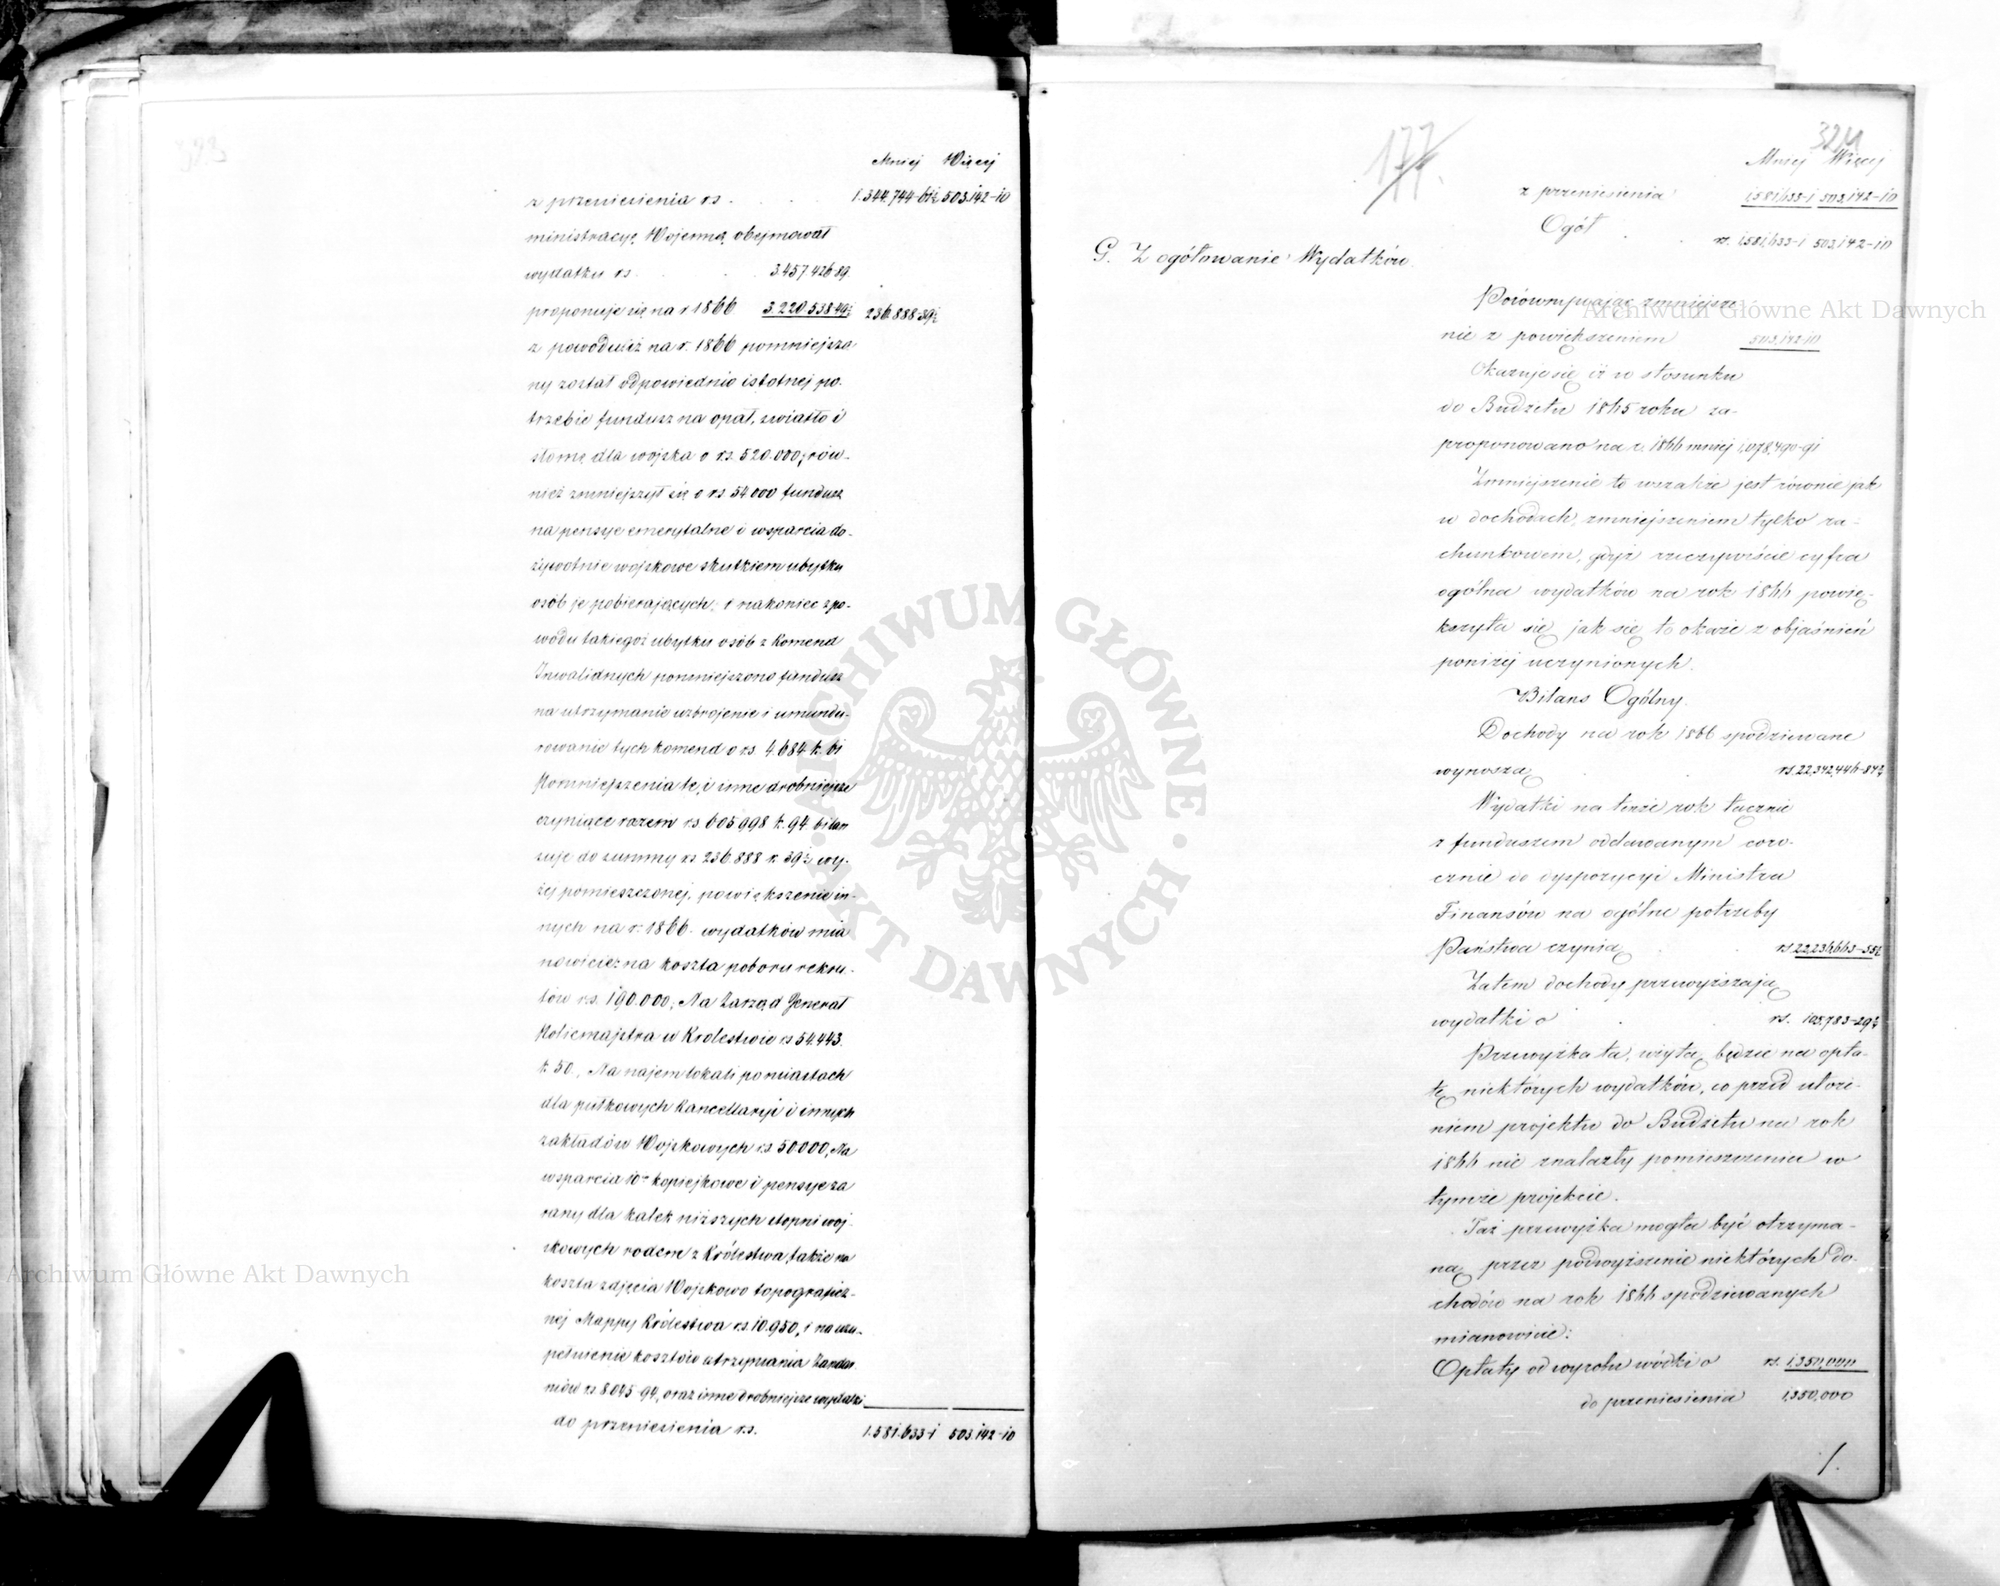 323
Mniej Więcej
z przeniesienia rs. 1.344.744-61½ 503.142-10
ministracyę Wojenną obejmował
wydatku rs. 3.457.426.89.
proponuje się na r 1866 3.220.538.49½ 236.888.39½
z powodu iż na r. 1866 pomniejszo
ny został odpowiednio istotnej po-
trzebie fundusz na opał, światło i
słomę dla wojska o rs. 520.000; rów-
nież zmniejszył się o rs 54000 fundusz
na pensye emerytalne i wsparcia do-
żywotnie wojskowe skutkiem ubytku
osób je pobierających; i nakoniec z po-
wodu takiegoż ubytku osób z Komend
Inwalidnych pomniejszono fundusz
na utrzymanie uzbrojenie i umundu-
rowanie tych komend o rs 4.684 k. 61
Pomniejszenia te, i inne drobniejsze
czyniące razem rs. 605.998 k. 94 bilan
suje do summy rs 236.888 k. 39½ wy-
żej pomieszczonej, powiększenie in-
nych na r. 1866. wydatków mia
nowicie: na koszta poboru rekru-
tów rs. 190.000; Na Zarząd Generał
Policmajstra w Królestwie rs 54.443.
k. 50., Na najem lokali po miastach
dla pułkowych Kancellaryi i innych
zakładów Wojskowych rs 50.000, Na
wsparcia 10 kopiejkowe i pensye za
rany dla kalek niższych stopni woj-
skowych rodem z Królestwa, także na
koszta zdjęcia Wojskowo topograficz-
nej Mappy Królestwa rs. 10.950, i na uzu-
pełnienie kosztów utrzymania Żandar
mów rs 8.045-94, oraz inne drobniejsze wydatki
do przeniesienia rs. 1.581.633-1 503.142-10
177
324
Mniej Więcej
z przeniesienia 1,581,633-1 503,142-10
Ogół rs. 1,581,633-1 503,142-10
G. Zogółowanie Wydatków.
Porównywając zmniejsze
nie z powiększeniem 503,142-10
Okazuje się iż w stosunku
do Budżetu 1865 roku za-
proponowano na r. 1866 mniej 1,078,490-91
Zmniejszenie to wszakże jest równie jak
w dochodach, zmniejszeniem tylko ra-
chunkowem, gdyż rzeczywiście cyfra
ogólna wydatków na rok 1866 powię-
kszyła się, jak się to okaże z objaśnień
poniżej uczynionych.
Bilans Ogólny.
Dochody na rok 1866 spodziewane
wynoszą rs. 22,342,446-84½
Wydatki na tenże rok łącznie
z funduszem oddawanym coro-
cznie do dyspozycyi Ministra
Finansów na ogólne potrzeby
Państwa czynią rs 22,236,663-55½
Zatem dochody przewyższają
wydatki o rs. 105,783-29½
Przewyżka ta, użytą będzie na opła-
tę niektórych wydatków, co przed ułoże-
niem projektu do Budżetu na rok
1866 nie znalazły pomieszczenia w
tymże projekcie.
Taż przewyżka mogła być otrzyma-
ną przez podwyższenie niektórych do-
chodów na rok 1866 spodziewanych
mianowicie:
Opłaty od wyrobu wódki o rs. 1,350,000
do przeniesienia 1,350,000
/.
Archiwum Główne Akt Dawnych
Archiwum Główne Akt Dawnych
ARCHIWUM GŁÓWNE · AKT DAWNYCH ·